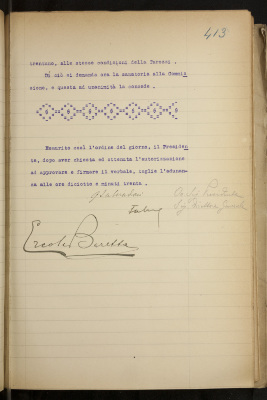 413
trentuno, alle stesse condizioni della Tarenzi .
Di più si domanda ora la sanatoria alla Commis
sione, e questa ad unanimità lo concede .
Esaurito così l'ordine del giorno, il Presiden
te, dopo aver chiesta ed ottenuta l'autorizzazione
ad approvare e firmare il verbale, toglie l'adunan-
za alle ore diciotto e minuti trenta .
Ercole Biretta